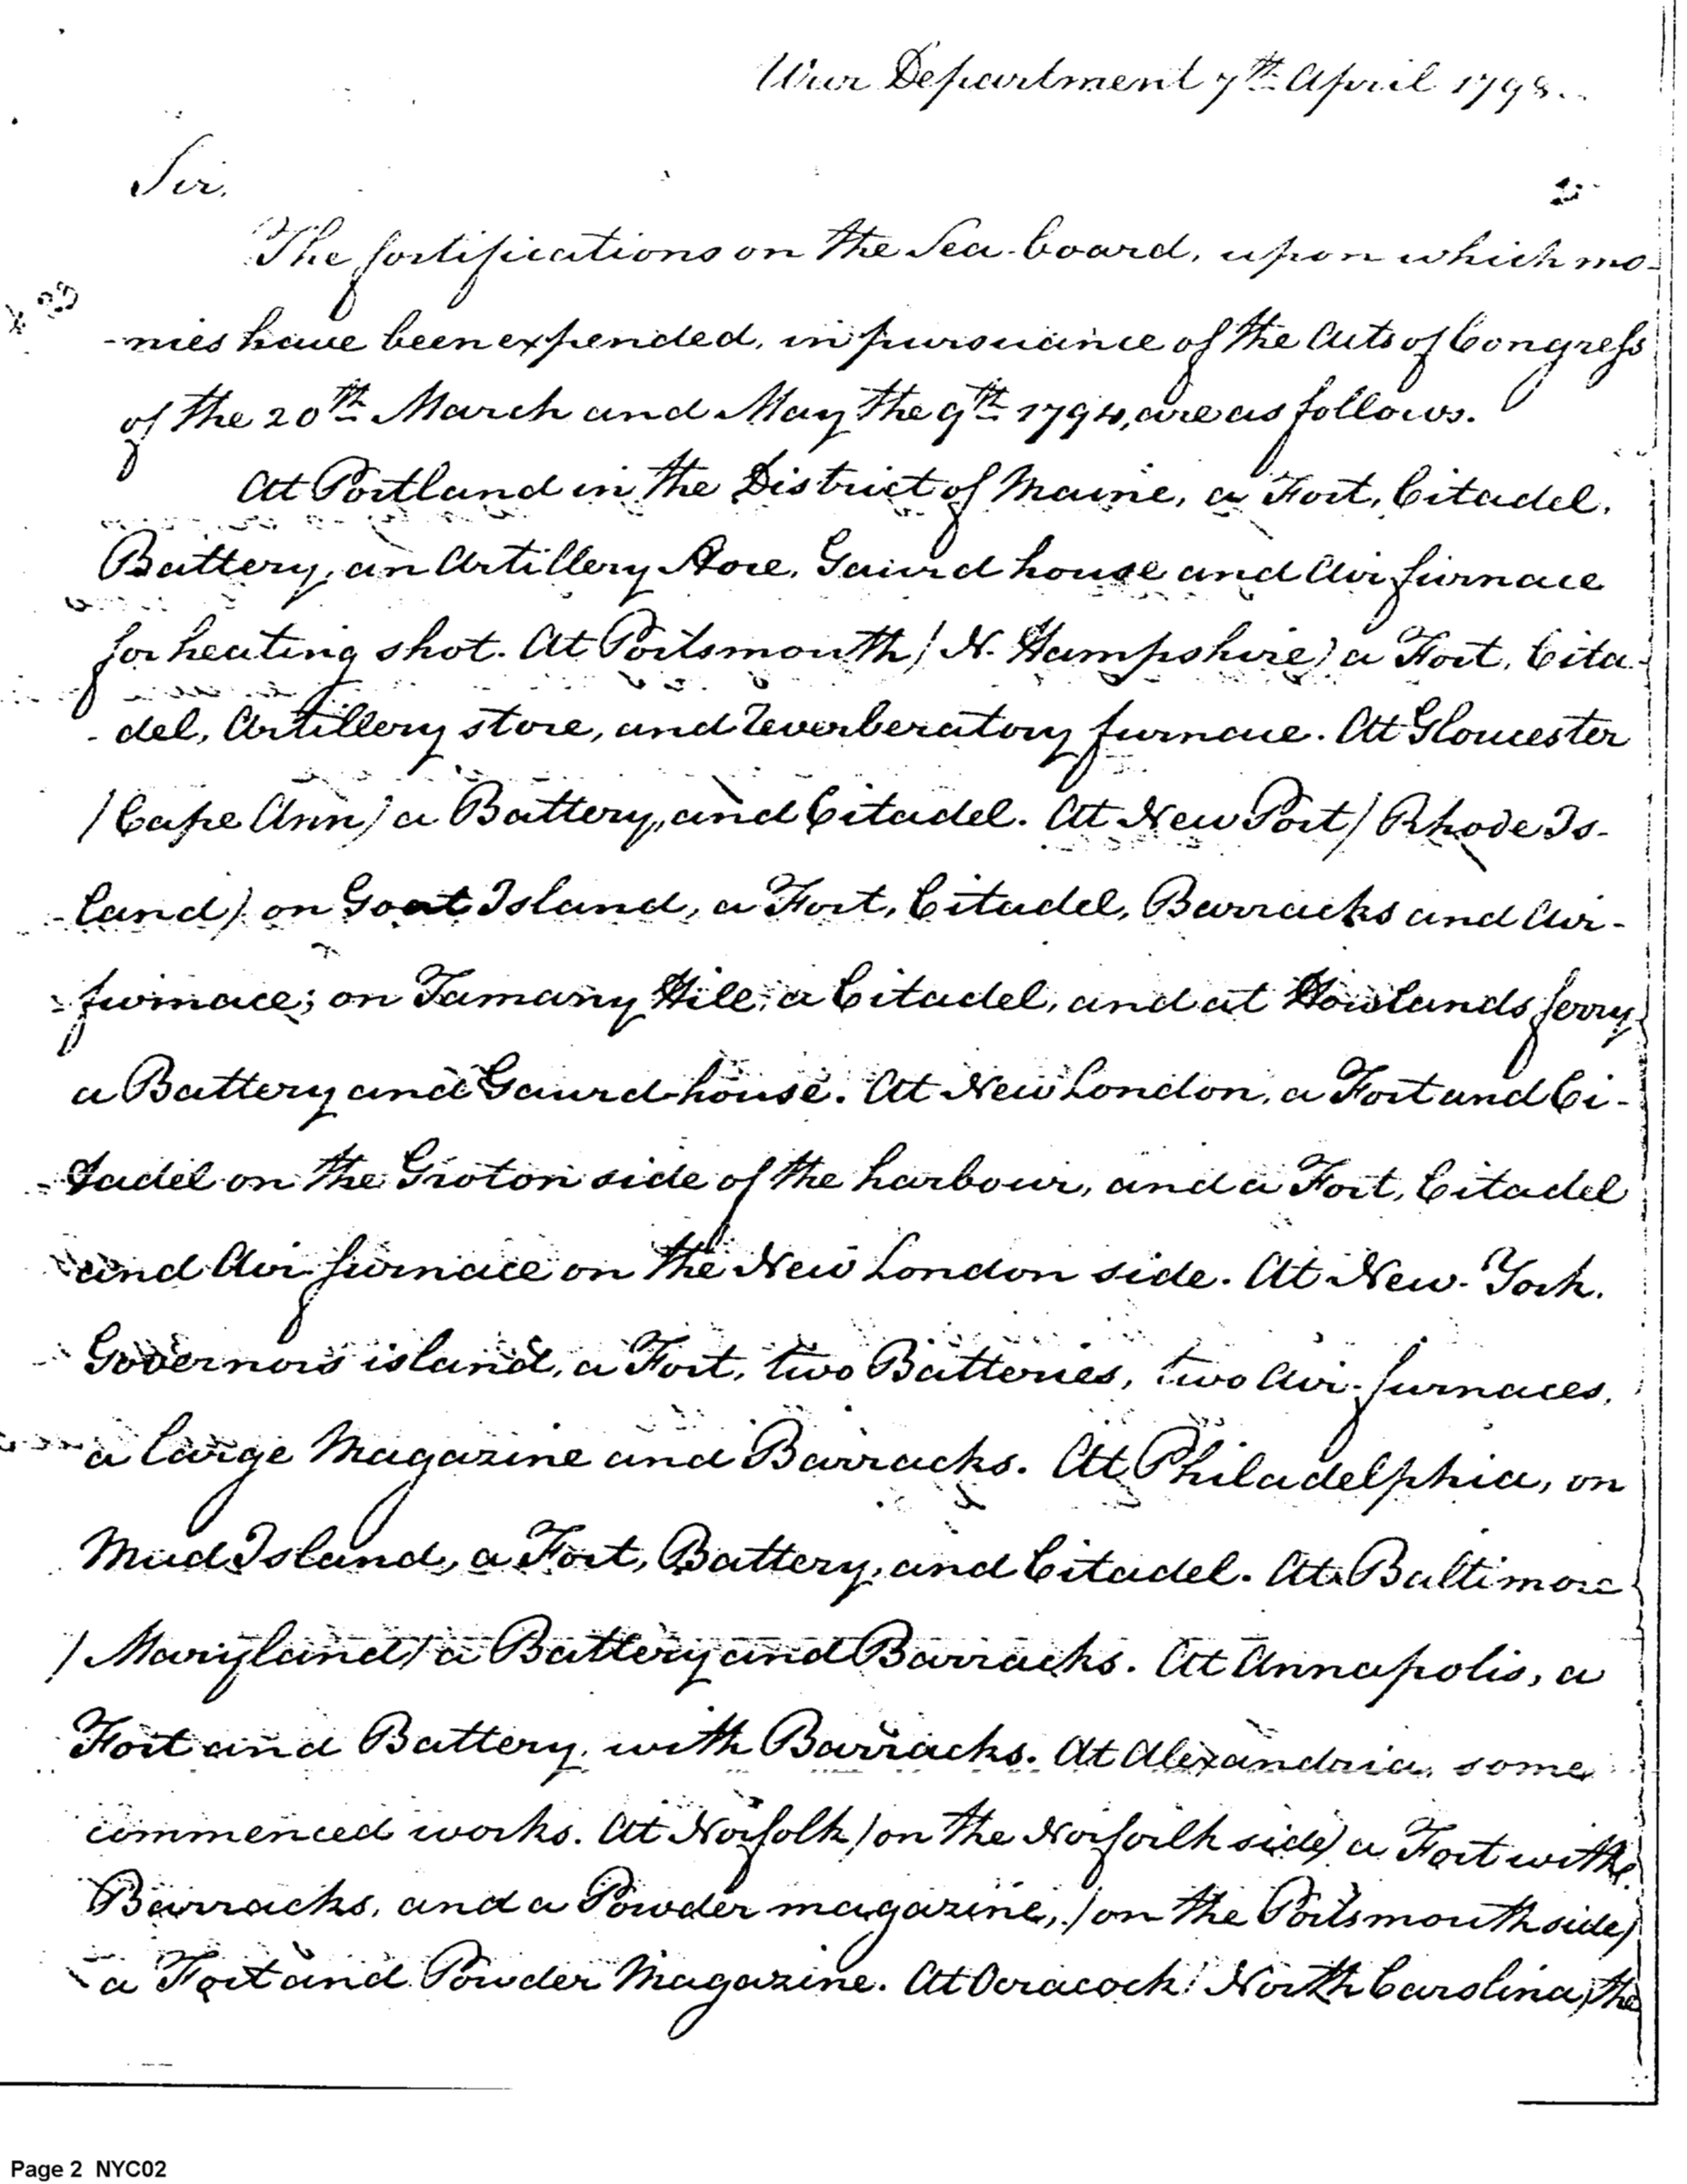 War Department 7th April 1798.
Sir,
The fortifications on the Sea-board, upon which mo-
-nies have been expended, in pursuance of the Acts of Congress
of the 20th March and May the 9th 1794, are as follows.
At Portland in the District of Maine, a Fort, Citadel,
Battery, an Artillery Store, Gaurd house and Air furnace
for heating shot. At Portsmouth (N. Hampshire) a Fort, Cita-
-del, Artillery store, and Reverberatory furnace. At Gloucester
(Cape Ann) a Battery, and Citadel. At New Port (Rhode Is-
-land) on Goat Island, a Fort, Citadel, Barracks and Air-
-furnace; on Tamany Hill, a Citadel, and at Howlands ferry,
a Battery and Gaurd-house. At New London, a Fort and Ci-
-tadel on the Groton side of the harbour, and a Fort, Citadel
and Air furnace on the New London side. At New-York.
Governors island, a Fort, two Batteries, two Air-furnaces,
a large Magazine and Barracks. At Philadelphia, on
Mud Island, a Fort, Battery, and Citadel. At Baltimore
(Maryland) a Battery and Barracks. At Annapolis, a
Fort and Battery, with Barracks. At Alexandria, some
commenced works. At Norfolk (on the Norfolk side) a Fort with
Barracks, and a Powder magazine, (on the Portsmouth side)
a Fort and Powder Magazine. At Ocracock (North Carolina) the
Page 2 NYC02